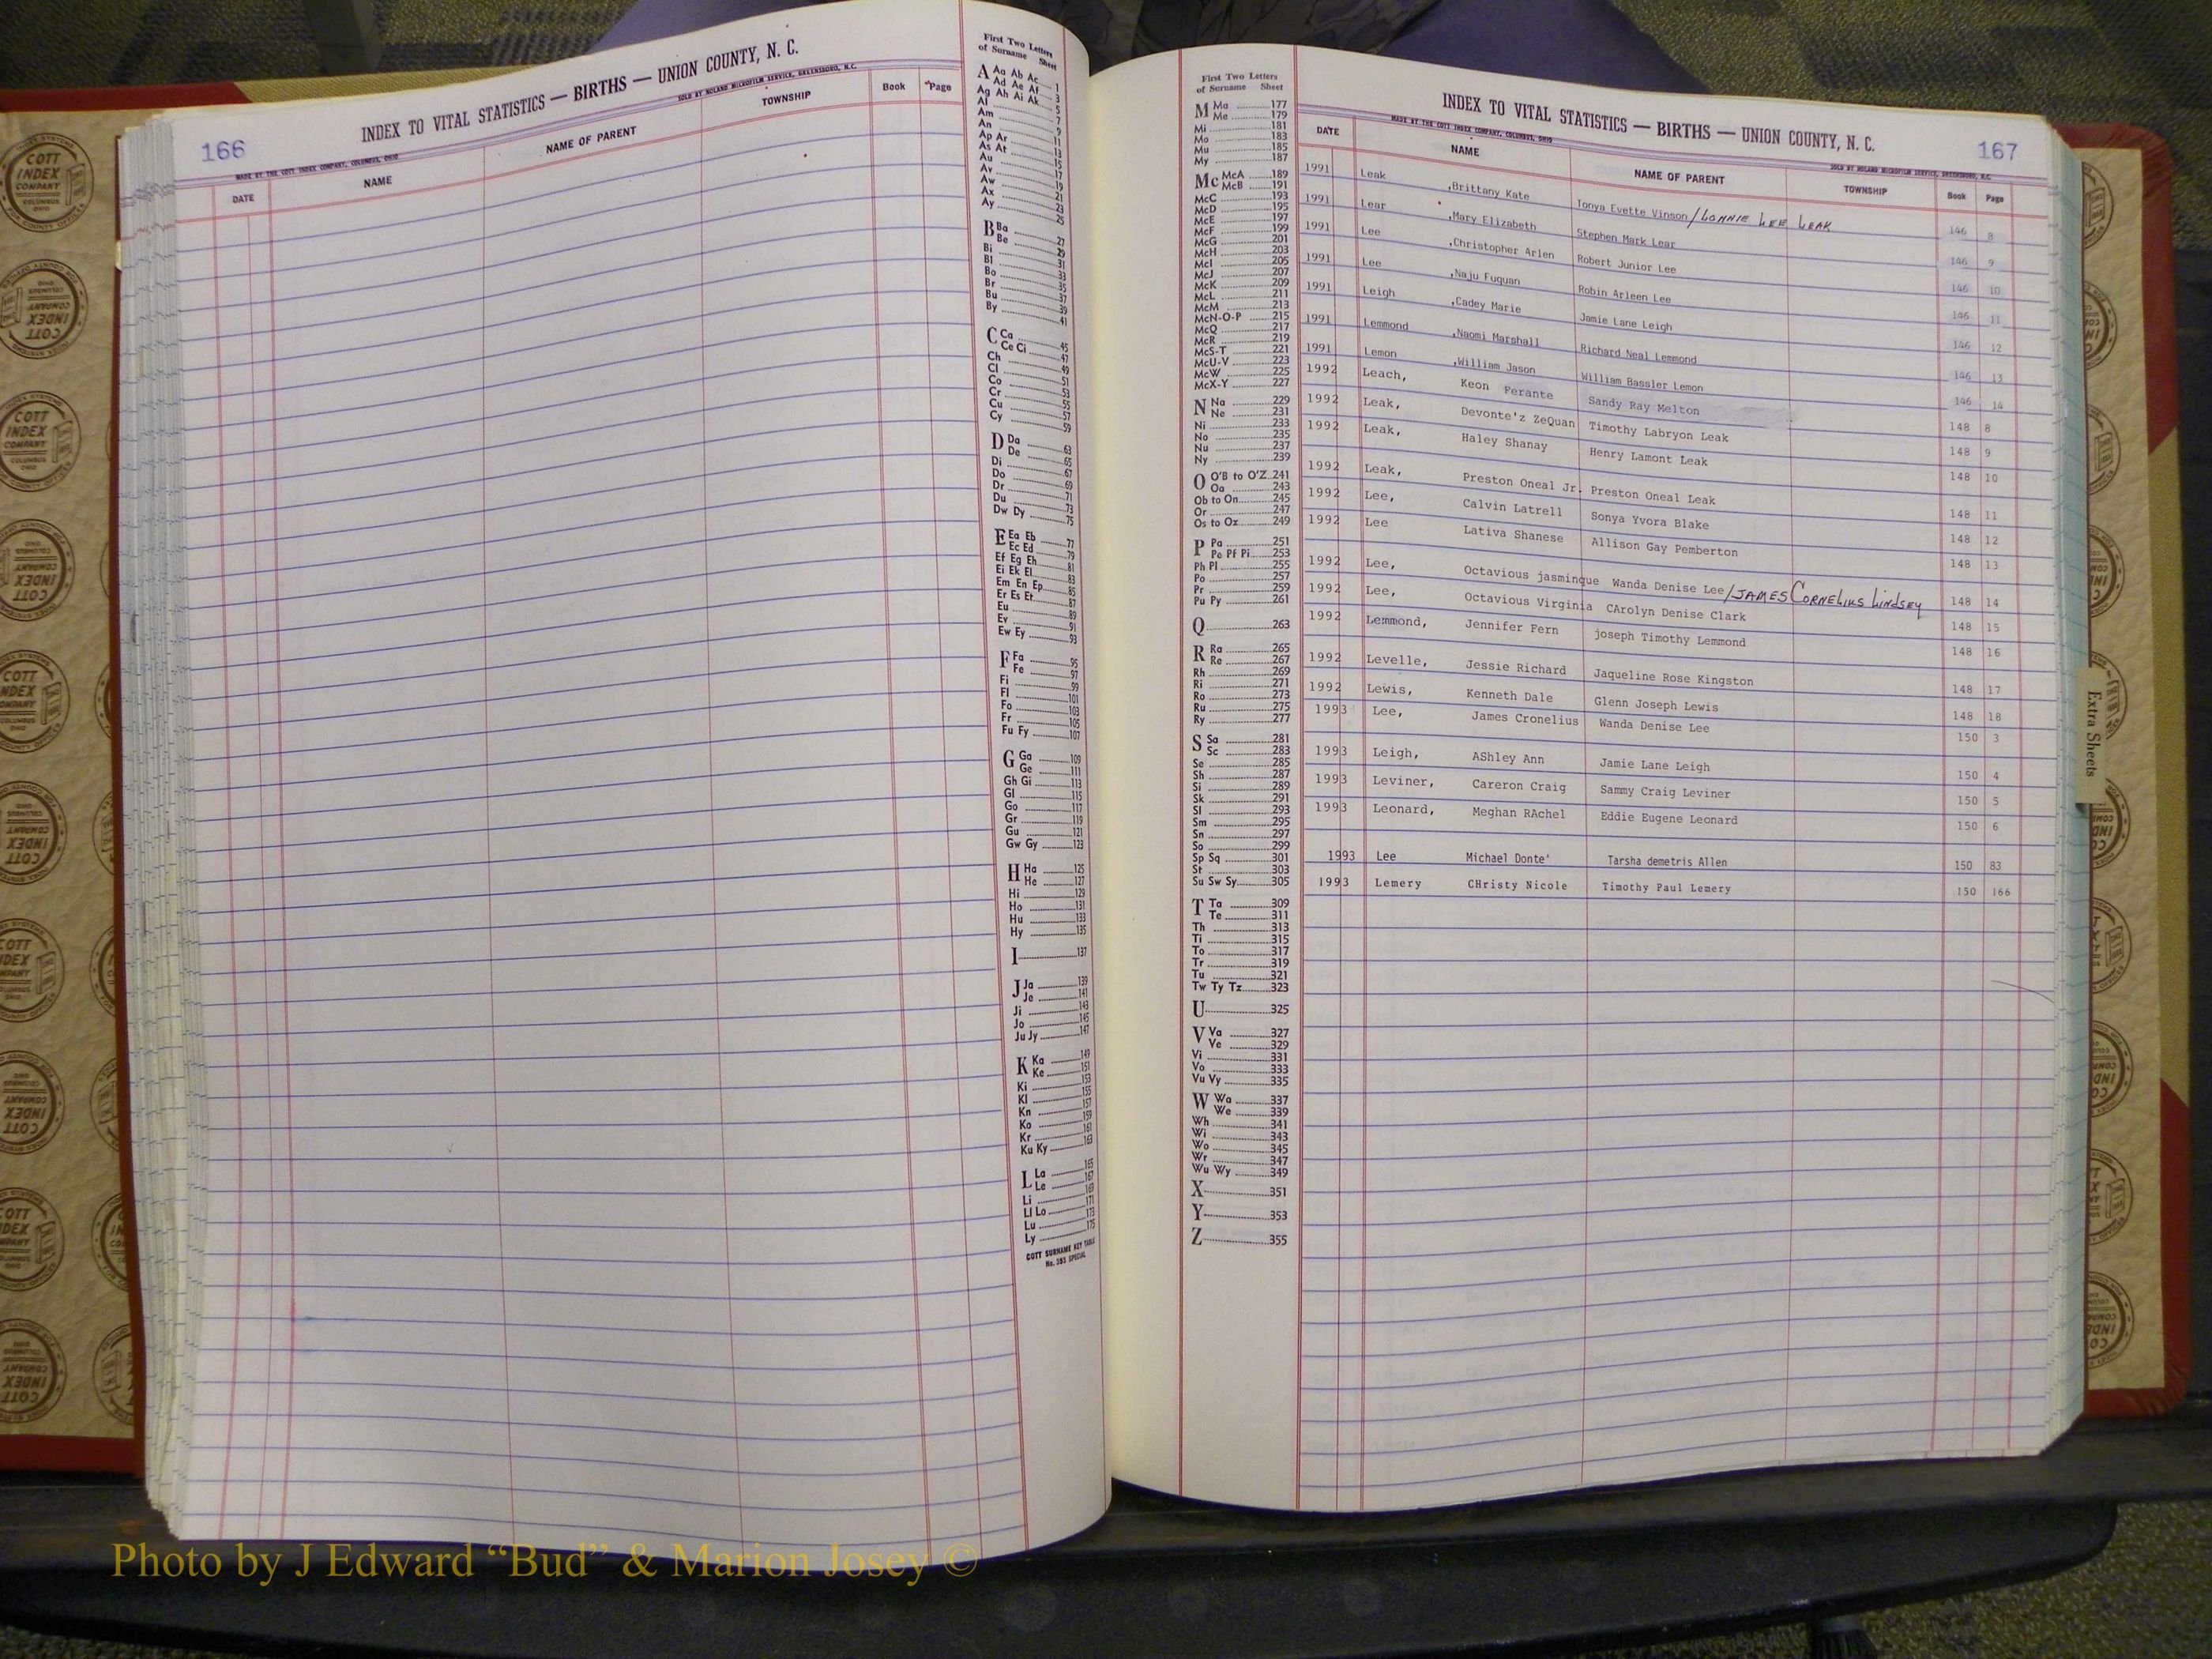 166
INDEX TO VITAL STATISTICS — BIRTHS — UNION COUNTY, N. C.
MADE BY THE COTT INDEX COMPANY, COLUMBUS, OHIO
SOLD BY NOLAND MICROFILM SERVICE, GREENSBORO, N.C.
DATE NAME NAME OF PARENT TOWNSHIP Book Page
First Two Letters
of Surname Sheet
A Aa Ab Ac 1
Ad Ae Af 3
Ag Ah Ai Ak 5
Al 7
Am 9
An 11
Ap Ar 13
As At 15
Au 17
Av 19
Aw 21
Ax 23
Ay 25
B Ba 27
Be 29
Bi 31
Bl 33
Bo 35
Br 37
Bu 39
By 41
C Ca 45
Ce Ci 47
Ch 49
Cl 51
Co 53
Cr 55
Cu 57
Cy 59
D Da 63
De 65
Di 67
Do 69
Dr 71
Du 73
Dw Dy 75
E Ea Eb 77
Ec Ed 79
Ef Eg Eh 81
Ei Ek El 83
Em En Ep 85
Er Es Et 87
Eu 89
Ev 91
Ew Ey 93
F Fa 95
Fe 97
Fi 99
Fl 101
Fo 103
Fr 105
Fu Fy 107
G Ga 109
Ge 111
Gh Gi 113
Gl 115
Go 117
Gr 119
Gu 121
Gw Gy 123
H Ha 125
He 127
Hi 129
Ho 131
Hu 133
Hy 135
I 137
J Ja 139
Je 141
Ji 143
Jo 145
Ju Jy 147
K Ka 149
Ke 151
Ki 153
Kl 155
Kn 157
Ko 159
Kr 161
Ku Ky 163
L La 165
Le 167
Li 169
Ll Lo 171
Lu 173
Ly 175
COTT SURNAME KEY TABLE
No. 353 SPECIAL
First Two Letters
of Surname Sheet
M Ma 177
Me 179
Mi 181
Mo 183
Mu 185
My 187
Mc McA 189
McB 191
McC 193
McD 195
McE 197
McF 199
McG 201
McH 203
McI 205
McJ 207
McK 209
McL 211
McM 213
McN-O-P 215
McQ 217
McR 219
McS-T 221
McU-V 223
McW 225
McX-Y 227
N Na 229
Ne 231
Ni 233
No 235
Nu 237
Ny 239
O O'B to O'Z 241
Oa 243
Ob to On 245
Or 247
Os to Oz 249
P Pa 251
Pe Pf Pi 253
Ph Pl 255
Po 257
Pr 259
Pu Py 261
Q 263
R Ra 265
Re 267
Rh 269
Ri 271
Ro 273
Ru 275
Ry 277
S Sa 281
Sc 283
Se 285
Sh 287
Si 289
Sk 291
Sl 293
Sm 295
Sn 297
So 299
Sp Sq 301
St 303
Su Sw Sy 305
T Ta 309
Te 311
Th 313
Ti 315
To 317
Tr 319
Tu 321
Tw Ty Tz 323
U 325
V Va 327
Ve 329
Vi 331
Vo 333
Vu Vy 335
W Wa 337
We 339
Wh 341
Wi 343
Wo 345
Wr 347
Wu Wy 349
X 351
Y 353
Z 355
INDEX TO VITAL STATISTICS — BIRTHS — UNION COUNTY, N. C.
167
MADE BY THE COTT INDEX COMPANY, COLUMBUS, OHIO
SOLD BY NOLAND MICROFILM SERVICE, GREENSBORO, N.C.
DATE NAME NAME OF PARENT TOWNSHIP Book Page
1991 Leak ,Brittany Kate Tonya Evette Vinson/LONNIE LEE LEAK 146 8
1991 Lear ,Mary Elizabeth Stephen Mark Lear 146 9
1991 Lee ,Christopher Arlen Robert Junior Lee 146 10
1991 Lee ,Naju Fuquan Robin Arleen Lee 146 11
1991 Leigh ,Cadey Marie Jamie Lane Leigh 146 12
1991 Lemmond ,Naomi Marshall Richard Neal Lemmond 146 13
1991 Lemon ,William Jason William Bassler Lemon 146 14
1992 Leach, Keon Perante Sandy Ray Melton 148 8
1992 Leak, Devonte'z ZeQuan Timothy Labryon Leak 148 9
1992 Leak, Haley Shanay Henry Lamont Leak 148 10
1992 Leak, Preston Oneal Jr. Preston Oneal Leak 148 11
1992 Lee, Calvin Latrell Sonya Yvora Blake 148 12
1992 Lee Lativa Shanese Allison Gay Pemberton 148 13
1992 Lee, Octavious jasminque Wanda Denise Lee/JAMES CORNELIUS LINDSEY 148 14
1992 Lee, Octavious Virginia CArolyn Denise Clark 148 15
1992 Lemmond, Jennifer Fern joseph Timothy Lemmond 148 16
1992 Levelle, Jessie Richard Jaqueline Rose Kingston 148 17
1992 Lewis, Kenneth Dale Glenn Joseph Lewis 148 18
1993 Lee, James Cronelius Wanda Denise Lee 150 3
1993 Leigh, AShley Ann Jamie Lane Leigh 150 4
1993 Leviner, Careron Craig Sammy Craig Leviner 150 5
1993 Leonard, Meghan RAchel Eddie Eugene Leonard 150 6
1993 Lee Michael Donte' Tarsha demetris Allen 150 83
1993 Lemery CHristy Nicole Timothy Paul Lemery 150 166
Extra Sheets
COTT INDEX COMPANY
Photo by J Edward “Bud” & Marion Josey ©